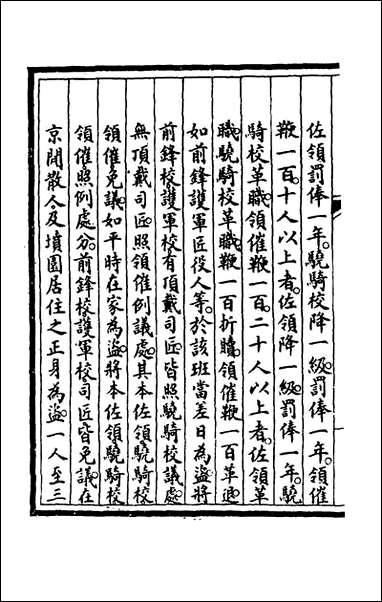 佐領罰俸一年驍騎校降一級罰俸一年領催
鞭一百十人以上者佐領降一級罰俸一年驍
騎校革職領催鞭一百二十人以上者佐領革
職驍騎校革職鞭一百折贖領催鞭一百革退
如前鋒護軍匠役人等於該班當差日為盜將
前鋒校護軍校有頂戴司匠皆照驍騎校議處
無頂戴司匠照領催例議處其本佐領驍騎校
領催免議如平時在家為盜將本佐領驍騎校
領催照例處分前鋒校護軍校司匠皆免議在
京閒散人及墳園居住之正身為盜一人至三